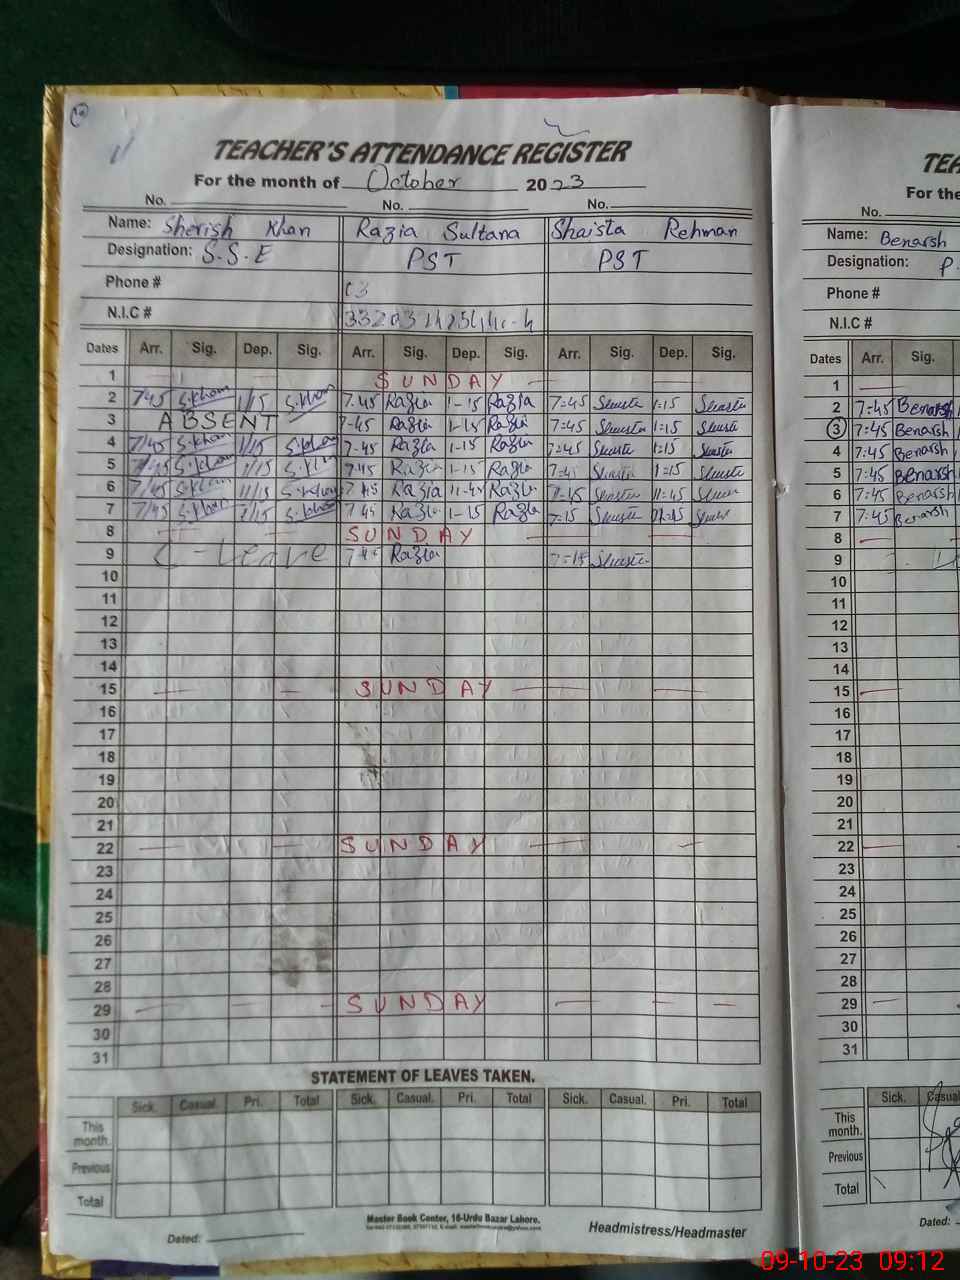 TEACHER'S ATTENDANCE REGISTER
For the month of October 2023
No. No. No.
Name: Sherish Khan Razia Sultana Shaista Rehman
Designation: S.S.E PST PST
Phone # 03
N.I.C #
Dates Arr. Sig. Dep. Sig. Arr. Sig. Dep. Sig. Arr. Sig. Dep. Sig.
1 SUNDAY
2 7/45 S.khan 1/15 S.khan 7-45 Razia 1-15 Razia 7:45 Shaista 1:15 Shaista
3 ABSENT 7-45 Razia 1-15 Razia 7:45 Shaista 1:15 Shaista
4 7/45 S.khan 1/15 S.khan 7-45 Razia 1-15 Razia 7:45 Shaista 1:15 Shaista
5 7/45 S.khan 1/15 S.khan 7-45 Razia 1-15 Razia 7:45 Shaista 1:15 Shaista
6 7/45 S.khan 11/15 S.khan 7-45 Razia 11-45 Razia 7-15 Shaista 11:45
7 7/45 S.khan 1/15 S.khan 7-45 Razia 1-15 Razia 7:15 Shaista
8 SUNDAY
9 C-Leave 7-45 Razia 7:15 Shaista
10
11
12
13
14
15 SUNDAY
16
17
18
19
20
21
22 SUNDAY
23
24
25
26
27
28
29 SUNDAY
30
31
STATEMENT OF LEAVES TAKEN.
Sick. Casual. Pri. Total Sick. Casual. Pri. Total Sick. Casual. Pri. Total
This month.
Previous
Total
Master Book Center, 16-Urdu Bazar Lahore.
Dated: Headmistress/Headmaster
TEA
For the
No.
Name: Benarsh
Designation: P.
Phone #
N.I.C #
Dates Arr. Sig.
1
2 7:45 Benarsh
3 7:45 Benarsh
4 7:45 Benarsh
5 7:45 Benarsh
6 7:45 Benarsh
7 7:45 Benarsh
8
9
10
11
12
13
14
15
16
17
18
19
20
21
22
23
24
25
26
27
28
29
30
31
Sick. Casual
This month.
Previous
Total
Dated:
09-10-23 09:12